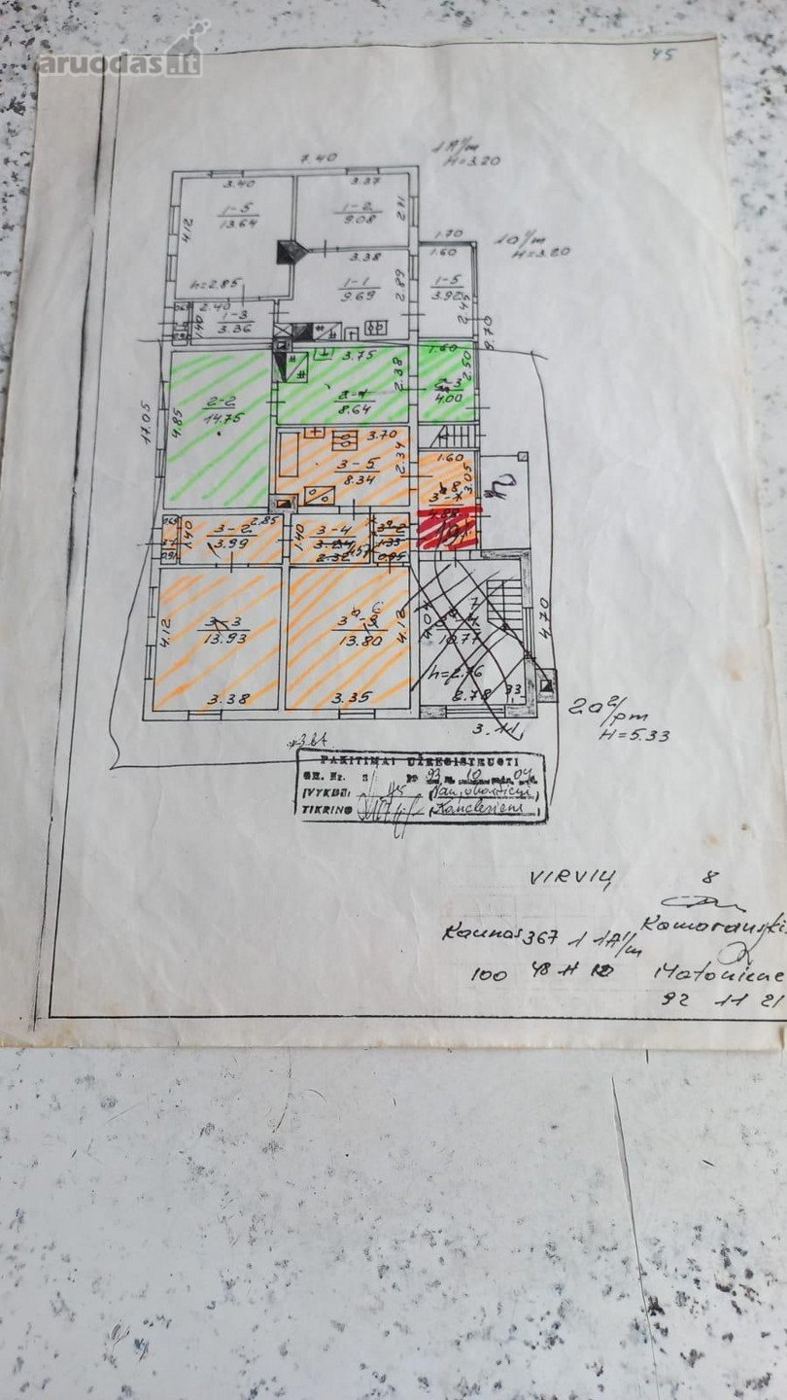 aruodas.lt
45
7.40
1A¹/m
H=3.20
3.40
3.37
1-5
13.64
1-2
9.08
4.12
1.70
10¹/m
H=3.20
3.38
1.60
1-1
9.69
2.89
1-5
3.92
2.45
h=2.85
2.40
1-3
3.36
1.40
8.70
3.75
1.60
2.38
2.50
2-2
14.75
8.64
2-3
4.00
17.05
4.85
3.70
3-5
8.34
2.34
1.60
3.05
3-2
3.99
2.85
1.40
3-4
2.32
1.40
1.33
0.95
4.12
3-3
13.93
13.80
4.12
10.77
4.70
h=2.76
3.38
3.35
2.78
3.11
2a²/pm
H=5.33
PAKITIMAI UŽREGISTRUOTI
93 10 04
ĮVYKDĖ
TIKRINO
VIRVIŲ 8
Kaunas 367 1 1A¹/m
100 48 H
92 11 21